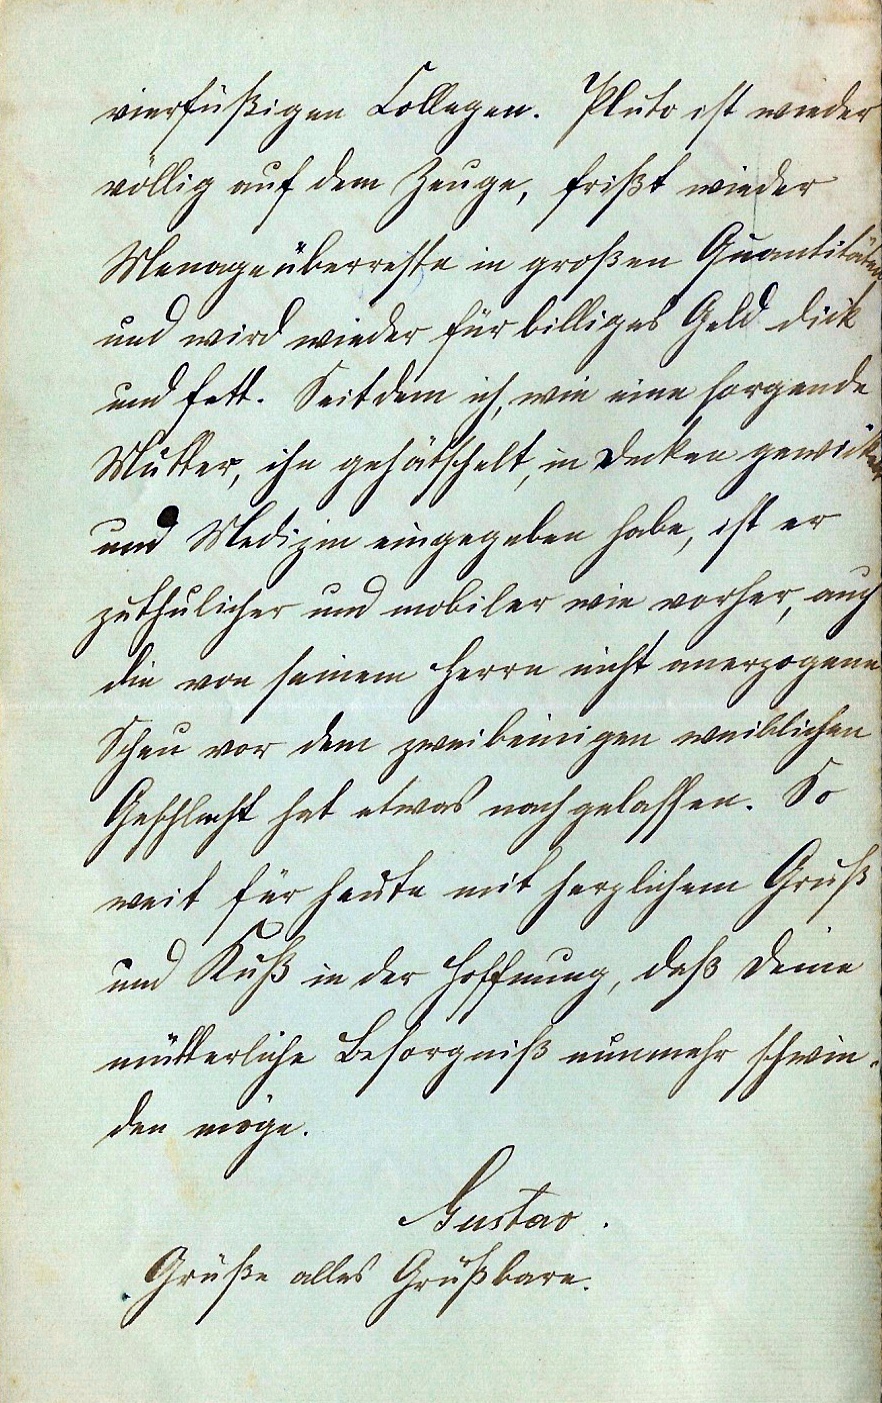 vierfüßigen Collegen. Pluto ist wieder
völlig auf dem Zeuge, frißt wieder
Menageüberreste in großen Quantitäten
und wird wieder für billiges Geld dick
und fett. Seitdem ich, wie eine sorgende
Mutter, ihn gehätschelt, in Decken gewickelt
und Medizin eingegeben habe, ist er
zuthulicher und mobiler wie vorher, auch
die von seinem Herrn nicht anerzogene
Scheu vor dem zweibeinigen weiblichen
Geschlecht hat etwas nachgelassen. So
weit für heute mit herzlichem Gruß
und Kuß in der Hoffnung, daß Deine
mütterliche Besorgniß nunmehr schwin-
den möge.
Gustav.
Grüße alles Grüßbare.